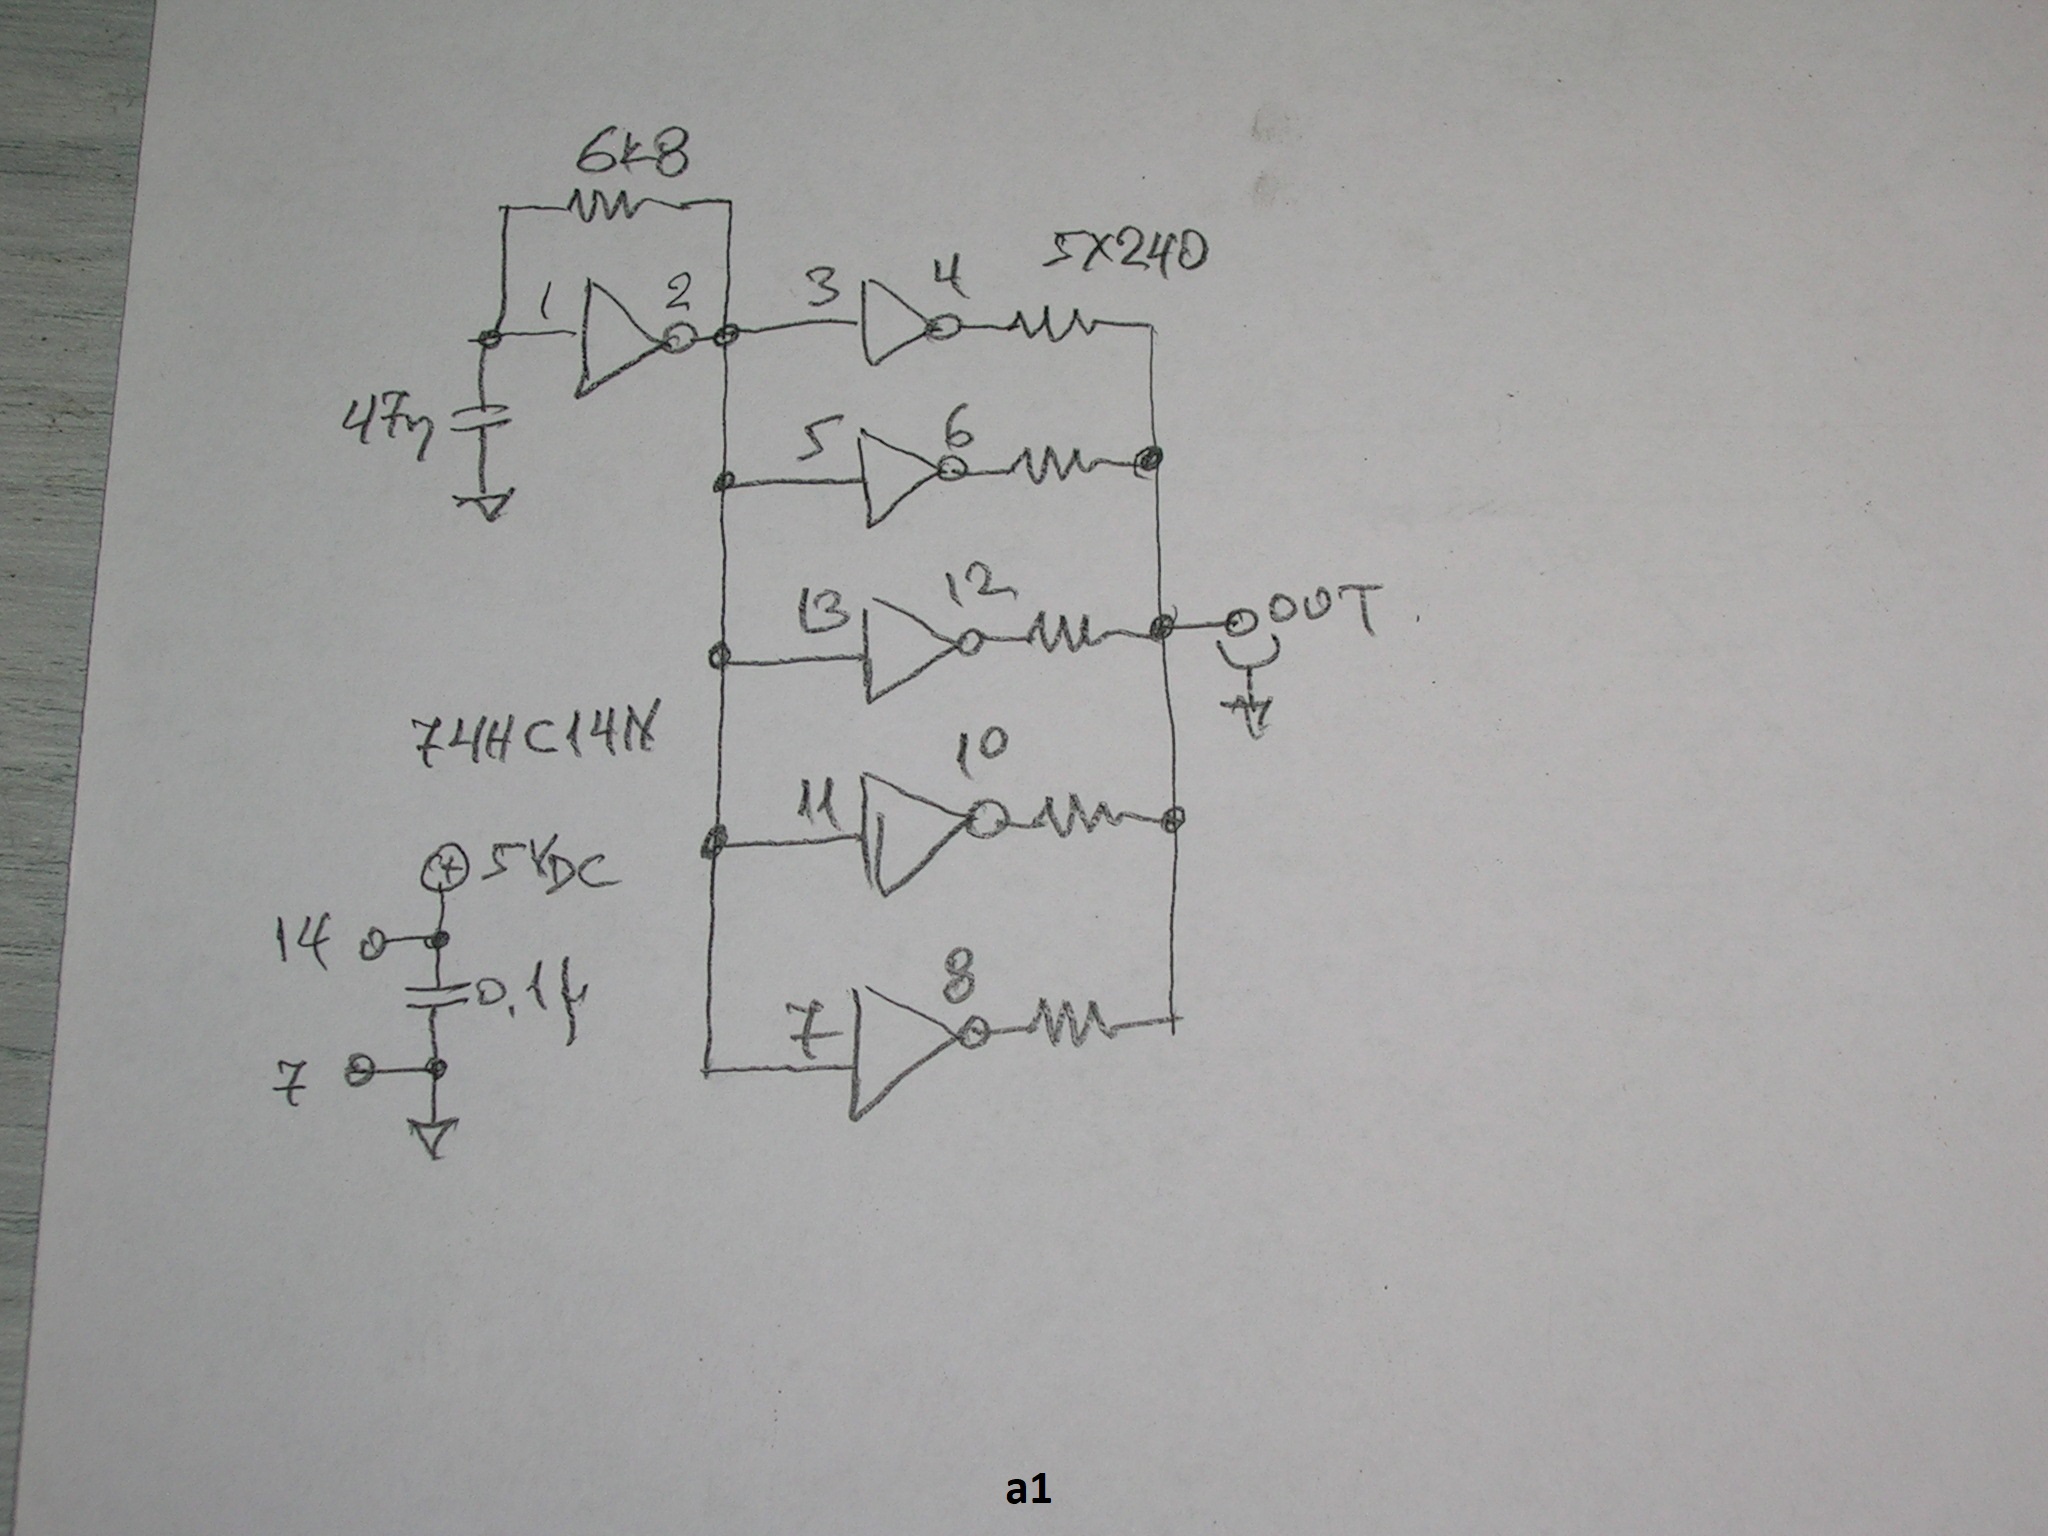 6k8
5X240
1
2
3
4
47n
5
6
13
12
OUT
74HC14N
11
10
+ 5VDC
14
0.1µ
7
8
7
a1